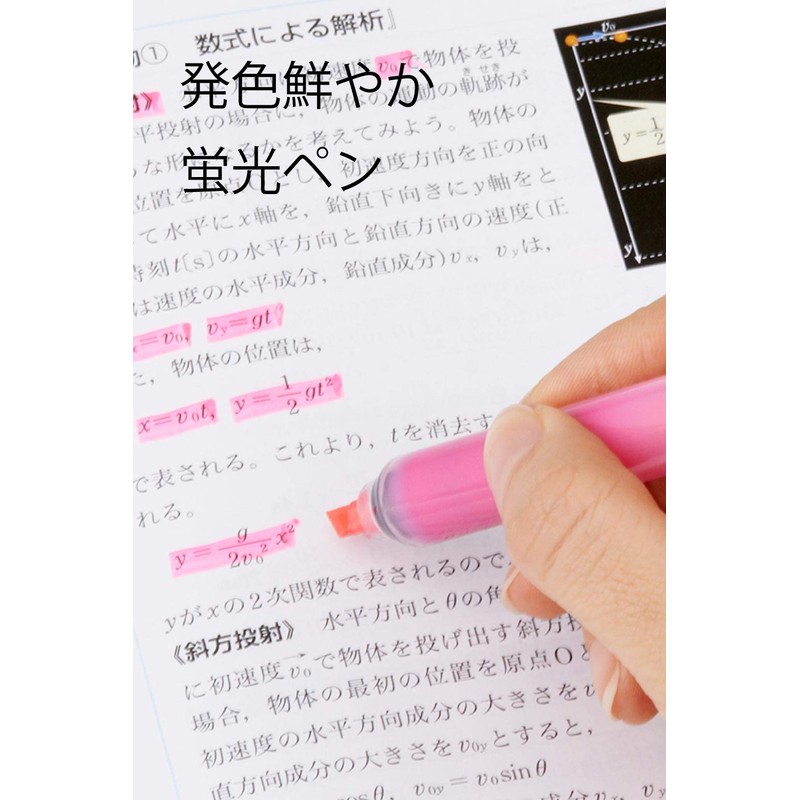 ① 数式による解析』
v₀で物体を投
発色鮮やか
の場合に，物体の運動の軌跡が
きせき
を考えてみよう。物体の
蛍光ペン
初速度方向を正の向
て水平にx軸を，鉛直下向きにy軸をと
時刻t[s]の水平方向と鉛直方向の速度(正
は速度の水平成分，鉛直成分)vx，vyは，
x=v₀, vy=gt
，物体の位置は，
x=v₀t, y=1/2 gt²
で表される。これより，tを消去す
れる。
y=g/2v₀² x²
yがxの2次関数で表されるので
《斜方投射》 水平方向とθの角
に初速度v₀で物体を投げ出す斜方投
場合，物体の最初の位置を原点Oと
初速度の水平方向成分の大きさをv
直方向成分の大きさをv₀yとすると，
cosθ, v₀y=v₀sinθ
v₀
y
y=1/2
y